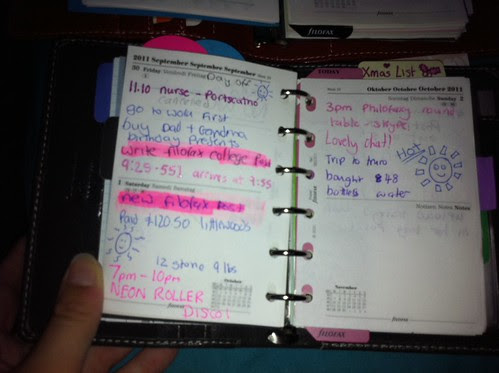 2011 September September September
30 Friday
Day off
11.10 nurse - Portscatho
go to work first
buy Dad + Grandma
birthday presents
write filofax college post
9:25-55! arrives at 9:55
1 Saturday Samedi Samstag
new filofax post
Paid £120.50 littlewoods
12 stone 9 lbs
7pm - 10pm
NEON ROLLER
DISCO!
filofax
TODAY
Xmas List
Oktober Octobre October 2011
Sunday 2
3pm Philofaxy round
table - skype
Lovely chat!!
Hot
Trip to truro
bought 48
bottles water
Notes
November
filofax
FILOFAX